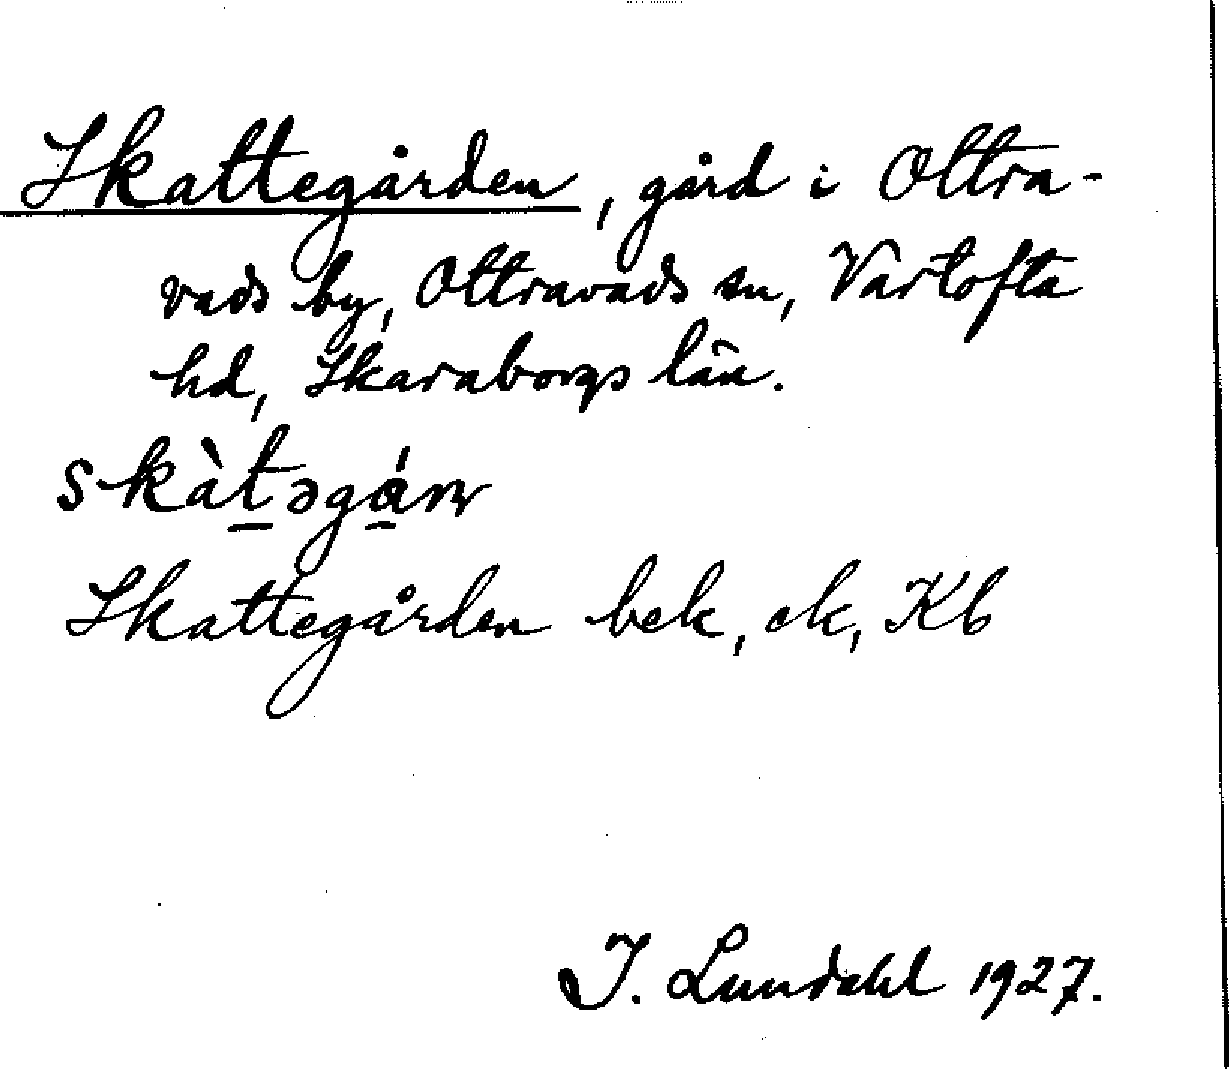 Skattegården, gård i Ottra-
vads by, Ottravads sn, Vartofta
hd, Skaraborgs län.
skàt̲əgá̲rn
Skattegården bek, ek, Kb
I. Lundahl 1927.